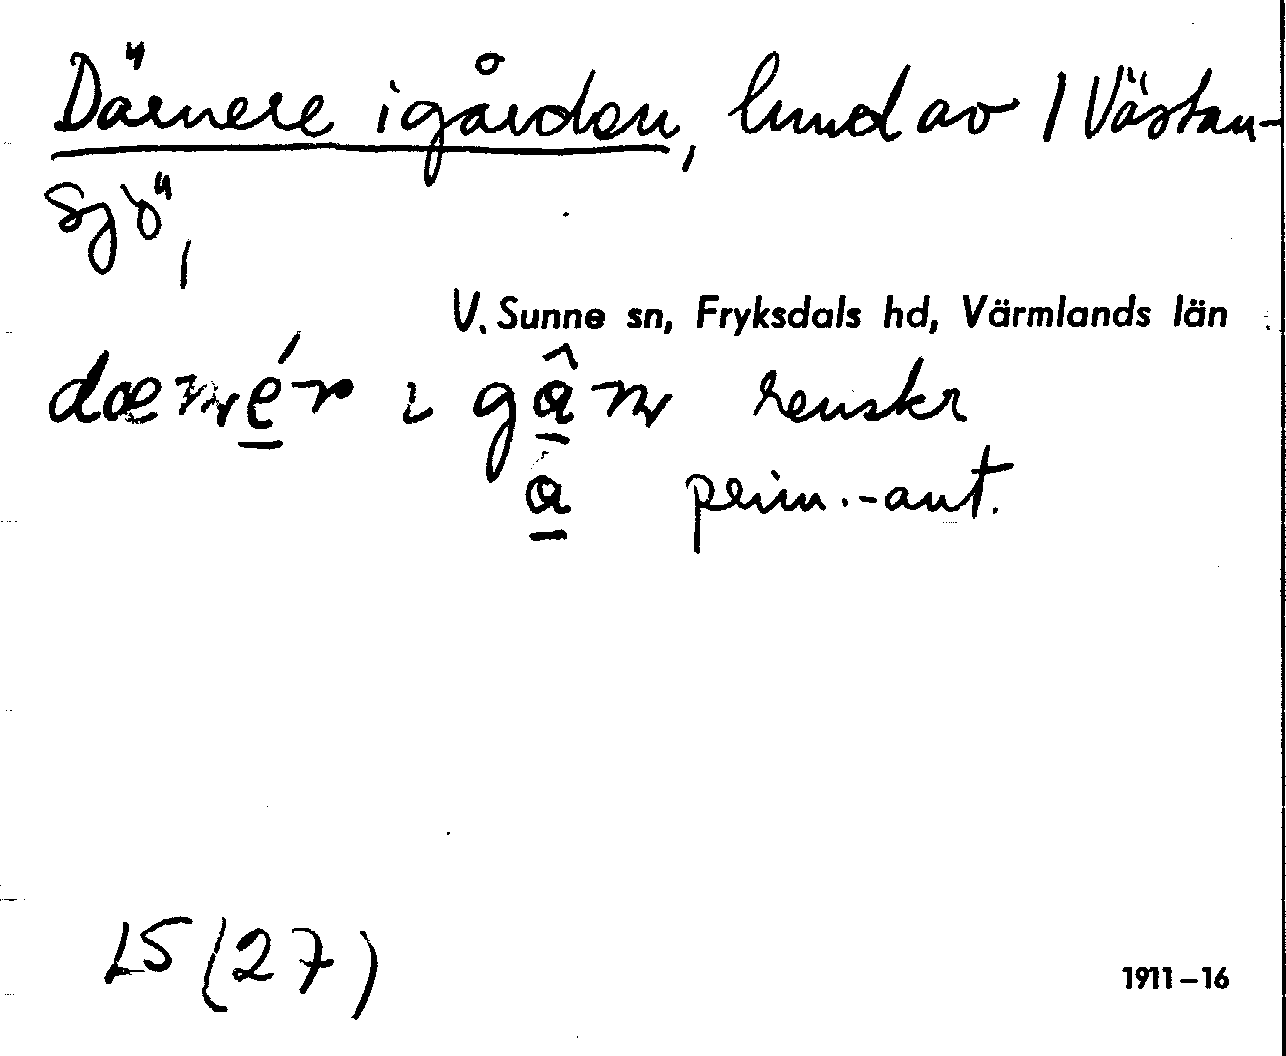 Därnere i gården, lmd av / Västan-
sjö,
V. Sunne sn, Fryksdals hd, Värmlands län
renskr
prim.-ant.
LS (27)
1911–16